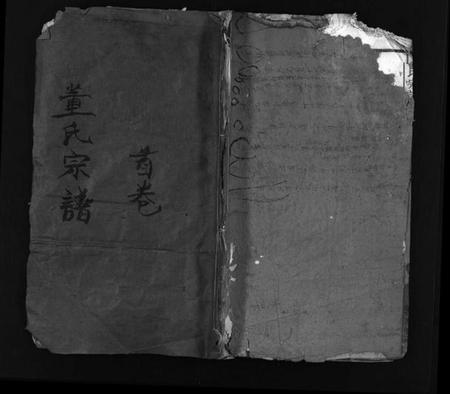 董氏宗譜
首卷